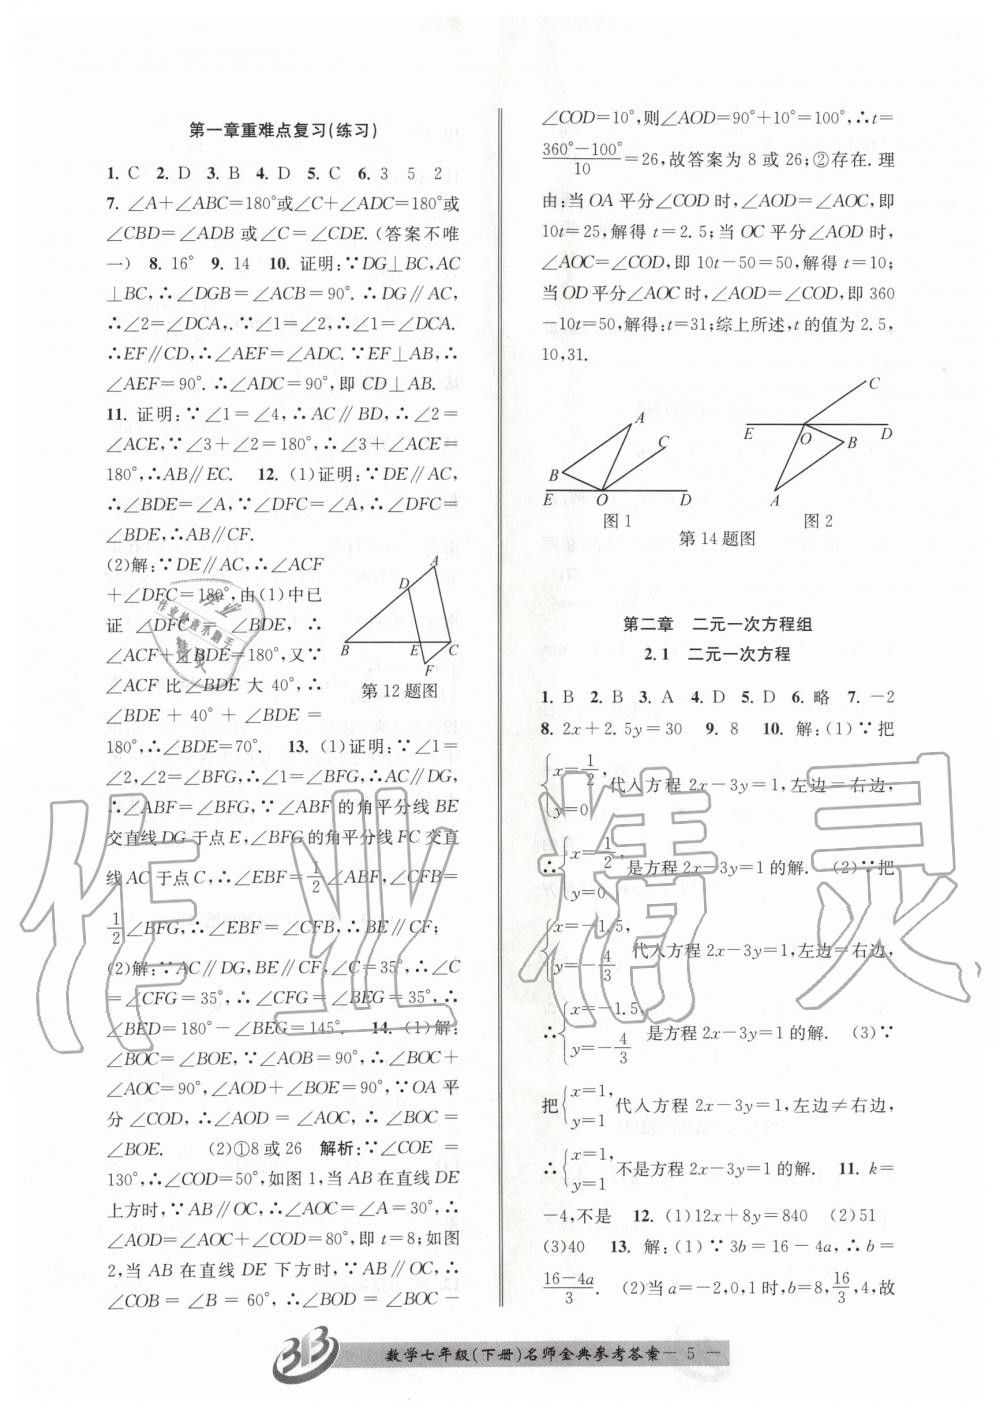 第一章重难点复习(练习)
1. C 2. D 3. B 4. D 5. C 6. 3 5 2
7. ∠A+∠ABC=180°或∠C+∠ADC=180°或
∠CBD=∠ADB 或∠C=∠CDE. (答案不唯
一) 8. 16° 9. 14 10. 证明:∵DG⊥BC,AC
⊥BC,∴∠DGB=∠ACB=90°. ∴DG∥AC,
∴∠2=∠DCA,. ∵∠1=∠2,∴∠1=∠DCA.
∴EF∥CD,∴∠AEF=∠ADC. ∵EF⊥AB,∴
∠AEF=90°. ∴∠ADC=90°,即 CD⊥AB.
11. 证明:∵∠1=∠4,∴AC∥BD,∴∠2=
∠ACE,∵∠3+∠2=180°,∴∠3+∠ACE=
180°,∴AB∥EC. 12. (1)证明:∵DE∥AC,
∴∠BDE=∠A,∵∠DFC=∠A,∴∠DFC=
∠BDE,∴AB∥CF.
(2)解:∵DE∥AC,∴∠ACF
+∠DFC=180°,由(1)中已
证 ∠DFC = ∠BDE, ∴
∠ACF+∠BDE=180°,又∵
∠ACF 比 ∠BDE 大 40°,∴
∠BDE + 40° + ∠BDE =
A
D
B
E
C
F
第12题图
180°,∴∠BDE=70°. 13. (1)证明:∵∠1=
∠2,∠2=∠BFG,∴∠1=∠BFG,∴AC∥DG,
∴∠ABF=∠BFG,∵∠ABF 的角平分线 BE
交直线 DG 于点 E,∠BFG的角平分线 FC 交直
线 AC 于点 C,∴∠EBF=1/2∠ABF,∠CFB=
1/2∠BFG,∴∠EBF=∠CFB,∴BE∥CF;
(2)解:∵AC∥DG,BE∥CF,∠C=35°,∴∠C
=∠CFG=35°,∴∠CFG=∠BEG=35°,∴
∠BED=180°-∠BEG=145°. 14. (1)解:
∠BOC=∠BOE,∵∠AOB=90°,∴∠BOC+
∠AOC=90°,∠AOD+∠BOE=90°,∵OA 平
分∠COD,∴∠AOD = ∠AOC,∴∠BOC =
∠BOE. (2)①8或26 解析:∵∠COE =
130°,∴∠COD=50°,如图1,当 AB 在直线 DE
上方时,∵AB∥OC,∴∠AOC=∠A=30°,∴
∠AOD=∠AOC+∠COD=80°,即 t=8;如图
2,当 AB 在直线 DE 下方时,∵AB∥OC,∴
∠COB = ∠B = 60°,∴∠BOD = ∠BOC -
∠COD=10°,则∠AOD=90°+10°=100°,∴t=
360°-100°/10=26,故答案为 8 或 26;②存在. 理
由:当 OA 平分∠COD 时,∠AOD=∠AOC,即
10t=25,解得 t=2.5;当 OC 平分∠AOD 时,
∠AOC=∠COD,即 10t-50=50,解得 t=10;
当OD平分∠AOC 时,∠AOD=∠COD,即 360
-10t=50,解得:t=31;综上所述,t 的值为 2.5,
10,31.
A
B
C
E
O
D
图 1
C
E
O
B
D
A
图 2
第 14 题图
第二章 二元一次方程组
2.1 二元一次方程
1. B 2. B 3. A 4. D 5. D 6. 略 7. -2
8. 2x+2.5y=30 9. 8 10. 解:(1)∵把
{x=1/2, y=0 代入方程 2x-3y=1,左边=右边,
∴{x=1/2, y=0 是方程 2x-3y=1 的解. (2)∵把
{x=-1.5, y=-4/3 代入方程 2x-3y=1,左边=右边,
∴{x=-1.5, y=-4/3 是方程 2x-3y=1 的解. (3)∵
把{x=1, y=1 代入方程 2x-3y=1,左边≠右边,
∴{x=1, y=1 不是方程 2x-3y=1 的解. 11. k=
-4,不是 12. (1)12x+8y=840 (2)51
(3)40 13. 解:(1)∵3b=16-4a,∴b=
16-4a/3. (2)当 a=-2,0,1时,b=8,16/3,4,故
数学七年级(下册)名师金典参考答案 — 5 —
作业精灵